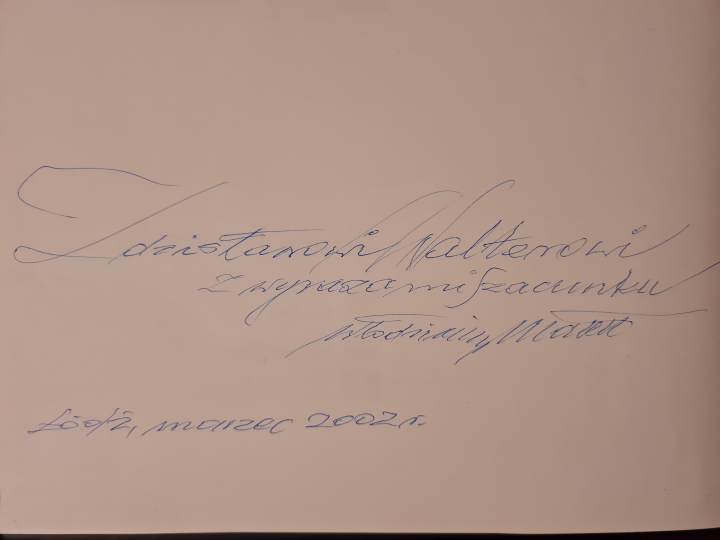 Zdzisławowi Walterowi
z wyrazami szacunku
Włodzimierz
Łódź, marzec 2002 r.